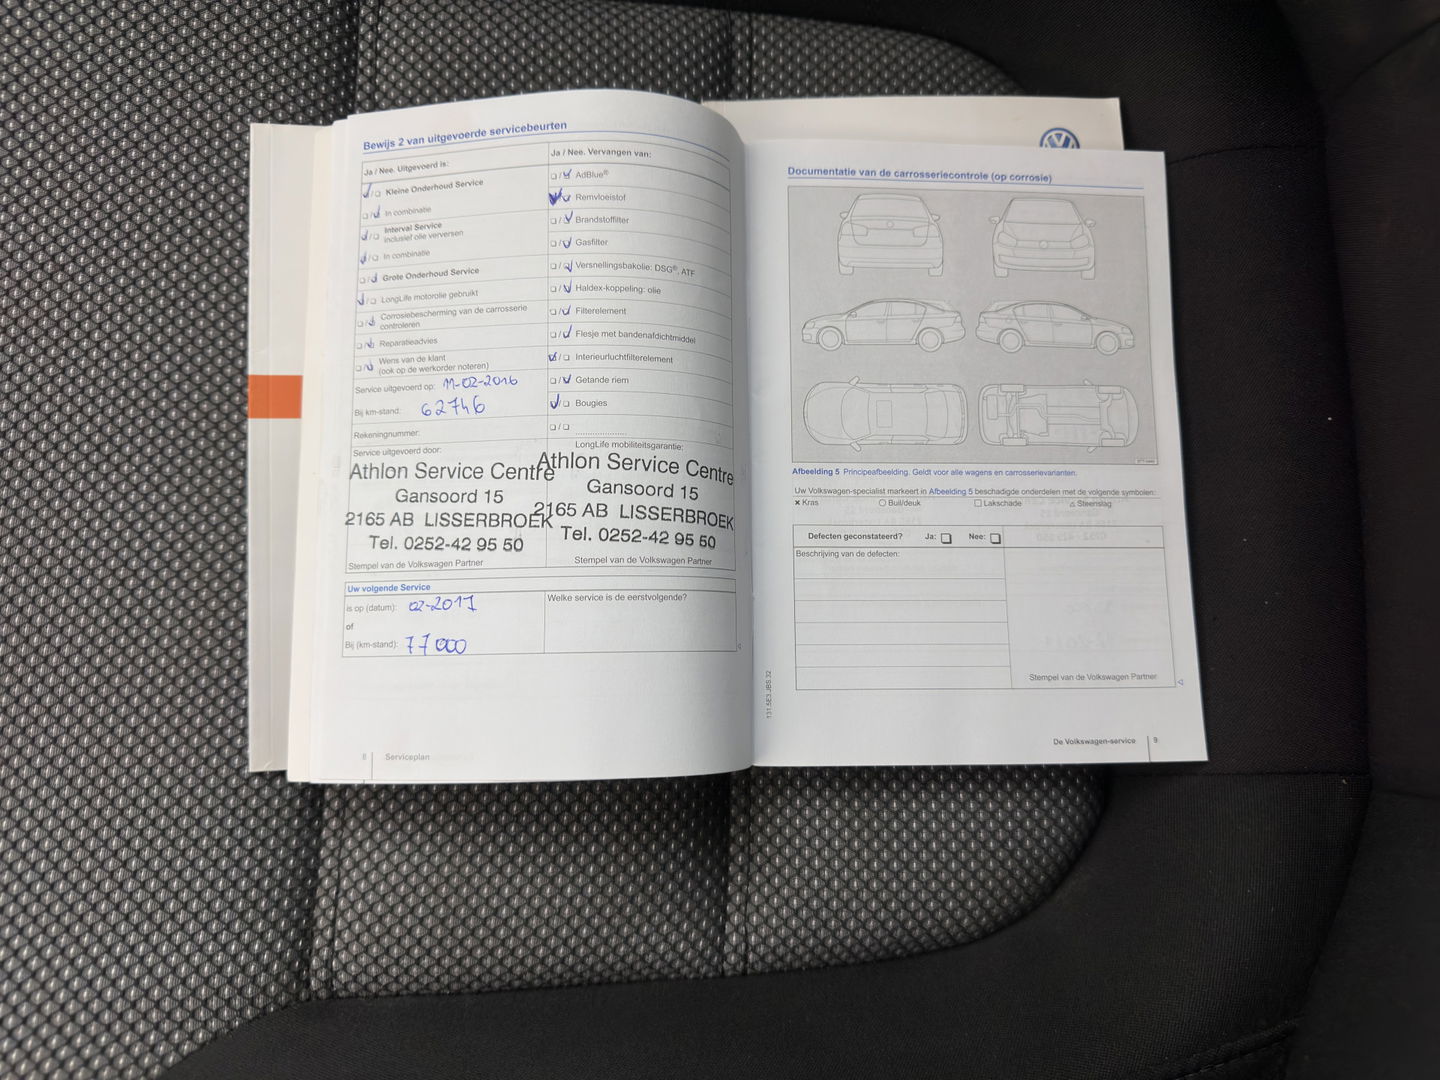 Bewijs 2 van uitgevoerde servicebeurten
Ja / Nee. Uitgevoerd is:
Kleine Onderhoud Service
In combinatie
Interval Service
inclusief olie verversen
In combinatie
Grote Onderhoud Service
LongLife motorolie gebruikt
Corrosiebescherming van de carrosserie
controleren
Reparatieadvies
Wens van de klant
(ook op de werkorder noteren)
Service uitgevoerd op: 11-02-2016
Bij km-stand: 62746
Rekeningnummer:
Service uitgevoerd door:
Athlon Service Centre
Gansoord 15
2165 AB LISSERBROEK
Tel. 0252-42 95 50
Stempel van de Volkswagen Partner
Ja / Nee. Vervangen van:
AdBlue®
Remvloeistof
Brandstoffilter
Gasfilter
Versnellingsbakolie: DSG®, ATF
Haldex-koppeling: olie
Filterelement
Flesje met bandenafdichtmiddel
Interieurluchtfilterelement
Getande riem
Bougies
LongLife mobiliteitsgarantie:
Athlon Service Centre
Gansoord 15
2165 AB LISSERBROEK
Tel. 0252-42 95 50
Stempel van de Volkswagen Partner
Uw volgende Service
is op (datum): 02-2017
of
Bij (km-stand): 77000
Welke service is de eerstvolgende?
8 Serviceplan
Documentatie van de carrosseriecontrole (op corrosie)
Afbeelding 5 Principeafbeelding. Geldt voor alle wagens en carrosserievarianten.
Uw Volkswagen-specialist markeert in Afbeelding 5 beschadigde onderdelen met de volgende symbolen:
Kras Buil/deuk Lakschade Steenslag
Defecten geconstateerd? Ja: Nee:
Beschrijving van de defecten:
Stempel van de Volkswagen Partner
131.5E3.JBS.32
De Volkswagen-service 9